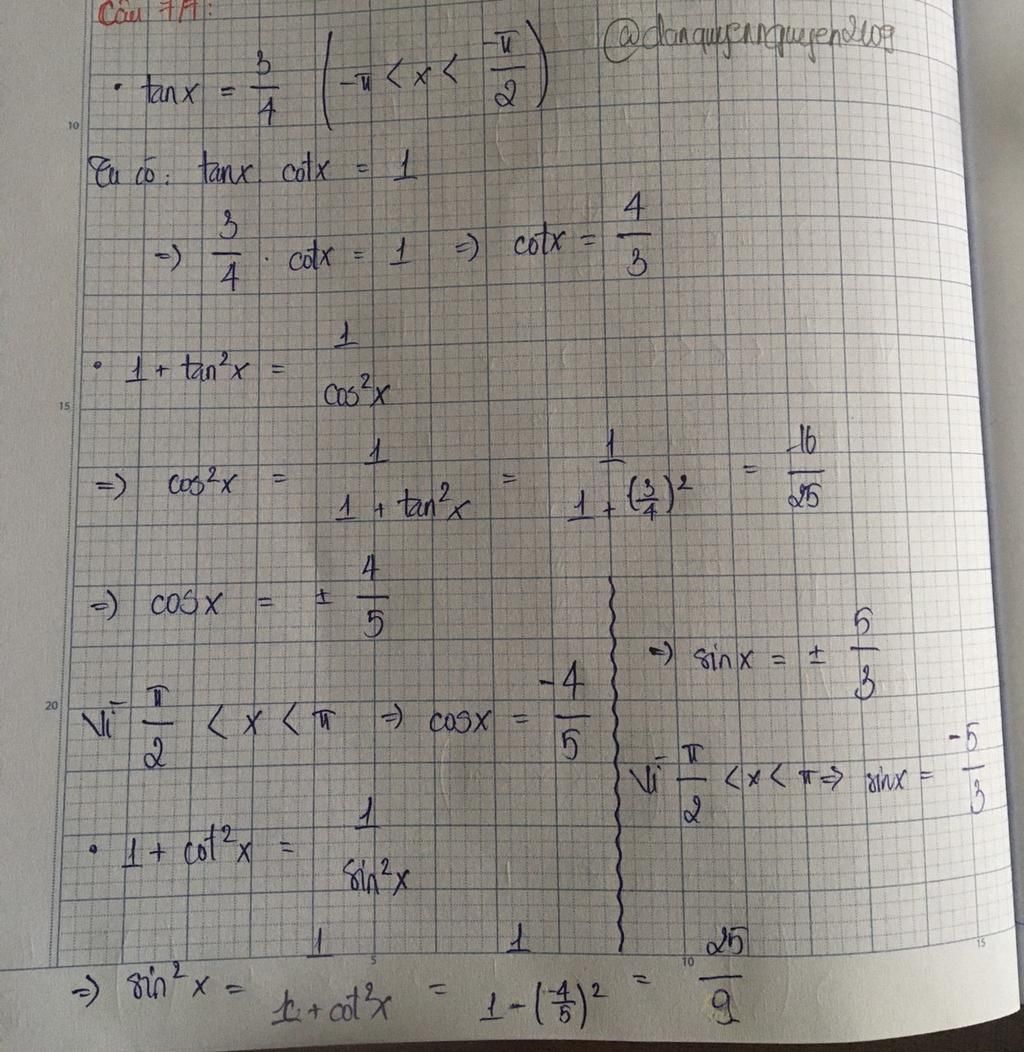 Câu 7A:
@danquyennguyen2109
• tanx = 3/4 (-π < x < -π/2)
Ta có: tanx. cotx = 1
=> 3/4 . cotx = 1 => cotx = 4/3
• 1 + tan²x = 1/cos²x
=> cos²x = 1/(1 + tan²x) = 1/(1 + (3/4)²) = 16/25
=> cosx = ± 4/5
Vì π/2 < x < π => cosx = -4/5
• 1 + cot²x = 1/sin²x
=> sin²x = 1/(1 + cot²x) = 1/(1 - (-4/5)²) = 25/9
=> sinx = ± 5/3
Vì π/2 < x < π => sinx = -5/3
10
15
20
5
10
15